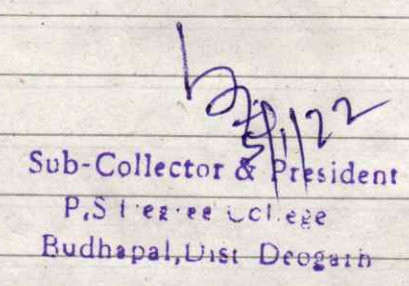 5/1/22
Sub-Collector & President
P.S Degree College
Budhapal, Dist Deogarh